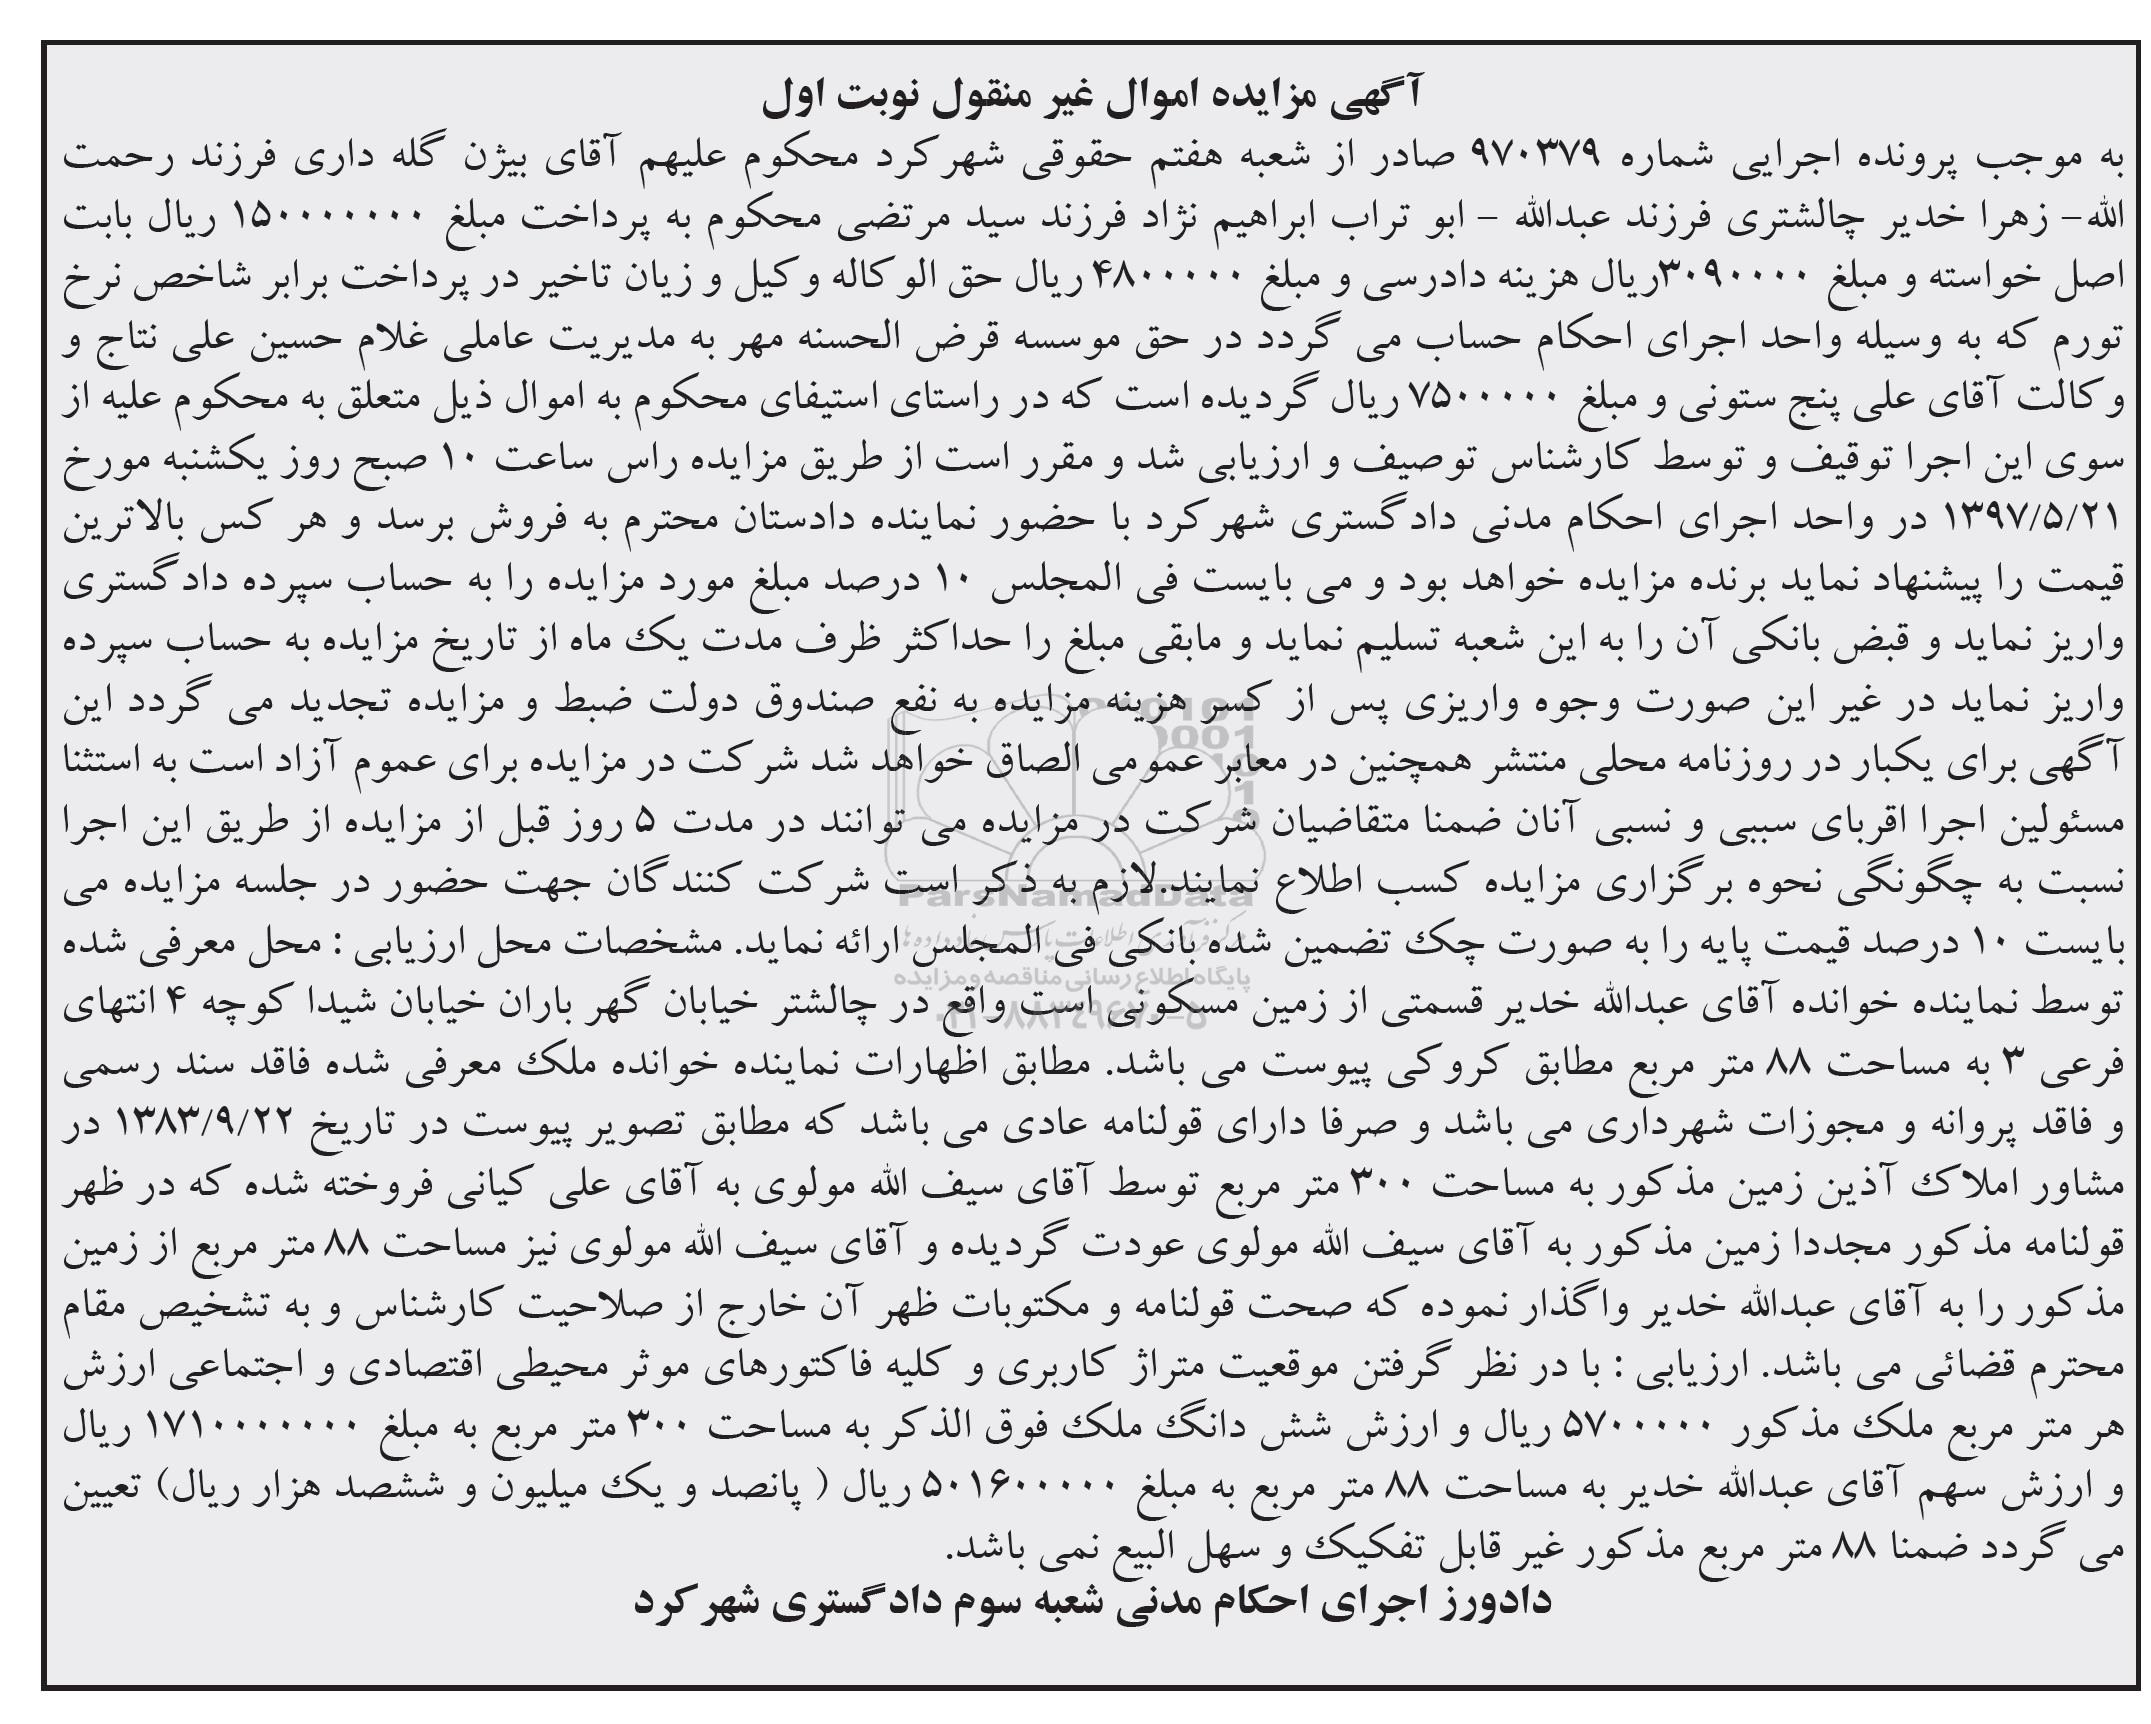 آگهی مزایده اموال غیر منقول نوبت اول
به موجب پرونده اجرایی شماره ۹۷۰۳۷۹ صادر از شعبه هفتم حقوقی شهرکرد محکوم علیهم آقای بیژن گله داری فرزند رحمت
الله- زهرا خدیر چالشتری فرزند عبدالله – ابو تراب ابراهیم نژاد فرزند سید مرتضی محکوم به پرداخت مبلغ ۱۵۰۰۰۰۰۰۰ ریال بابت
اصل خواسته و مبلغ ۳۰۹۰۰۰۰ریال هزینه دادرسی و مبلغ ۴۸۰۰۰۰۰ ریال حق الوکاله وکیل و زیان تاخیر در پرداخت برابر شاخص نرخ
تورم که به وسیله واحد اجرای احکام حساب می گردد در حق موسسه قرض الحسنه مهر به مدیریت عاملی غلام حسین علی نتاج و
وکالت آقای علی پنج ستونی و مبلغ ۷۵۰۰۰۰۰ ریال گردیده است که در راستای استیفای محکوم به اموال ذیل متعلق به محکوم علیه از
سوی این اجرا توقیف و توسط کارشناس توصیف و ارزیابی شد و مقرر است از طریق مزایده راس ساعت ۱۰ صبح روز یکشنبه مورخ
۱۳۹۷/۵/۲۱ در واحد اجرای احکام مدنی دادگستری شهرکرد با حضور نماینده دادستان محترم به فروش برسد و هر کس بالاترین
قیمت را پیشنهاد نماید برنده مزایده خواهد بود و می بایست فی المجلس ۱۰ درصد مبلغ مورد مزایده را به حساب سپرده دادگستری
واریز نماید و قبض بانکی آن را به این شعبه تسلیم نماید و مابقی مبلغ را حداکثر ظرف مدت یک ماه از تاریخ مزایده به حساب سپرده
واریز نماید در غیر این صورت وجوه واریزی پس از کسر هزینه مزایده به نفع صندوق دولت ضبط و مزایده تجدید می گردد این
آگهی برای یکبار در روزنامه محلی منتشر همچنین در معابر عمومی الصاق خواهد شد شرکت در مزایده برای عموم آزاد است به استثنا
مسئولین اجرا اقربای سببی و نسبی آنان ضمنا متقاضیان شرکت در مزایده می توانند در مدت ۵ روز قبل از مزایده از طریق این اجرا
نسبت به چگونگی نحوه برگزاری مزایده کسب اطلاع نمایند.لازم به ذکر است شرکت کنندگان جهت حضور در جلسه مزایده می
بایست ۱۰ درصد قیمت پایه را به صورت چک تضمین شده بانکی فی المجلس ارائه نماید. مشخصات محل ارزیابی : محل معرفی شده
توسط نماینده خوانده آقای عبدالله خدیر قسمتی از زمین مسکونی است واقع در چالشتر خیابان گهر باران خیابان شیدا کوچه ۴ انتهای
فرعی ۳ به مساحت ۸۸ متر مربع مطابق کروکی پیوست می باشد. مطابق اظهارات نماینده خوانده ملک معرفی شده فاقد سند رسمی
و فاقد پروانه و مجوزات شهرداری می باشد و صرفا دارای قولنامه عادی می باشد که مطابق تصویر پیوست در تاریخ ۱۳۸۳/۹/۲۲ در
مشاور املاک آذین زمین مذکور به مساحت ۳۰۰ متر مربع توسط آقای سیف الله مولوی به آقای علی کیانی فروخته شده که در ظهر
قولنامه مذکور مجددا زمین مذکور به آقای سیف الله مولوی عودت گردیده و آقای سیف الله مولوی نیز مساحت ۸۸ متر مربع از زمین
مذکور را به آقای عبدالله خدیر واگذار نموده که صحت قولنامه و مکتوبات ظهر آن خارج از صلاحیت کارشناس و به تشخیص مقام
محترم قضائی می باشد. ارزیابی : با در نظر گرفتن موقعیت متراژ کاربری و کلیه فاکتورهای موثر محیطی اقتصادی و اجتماعی ارزش
هر متر مربع ملک مذکور ۵۷۰۰۰۰۰ ریال و ارزش شش دانگ ملک فوق الذکر به مساحت ۳۰۰ متر مربع به مبلغ ۱۷۱۰۰۰۰۰۰۰ ریال
و ارزش سهم آقای عبدالله خدیر به مساحت ۸۸ متر مربع به مبلغ ۵۰۱۶۰۰۰۰۰ ریال ( پانصد و یک میلیون و ششصد هزار ریال) تعیین
می گردد ضمنا ۸۸ متر مربع مذکور غیر قابل تفکیک و سهل البیع نمی باشد.
دادورز اجرای احکام مدنی شعبه سوم دادگستری شهرکرد
ParsNamadData
پایگاه اطلاع رسانی مناقصه و مزایده
۰۲۱-۸۸۳۴۹۶۷۰-۵